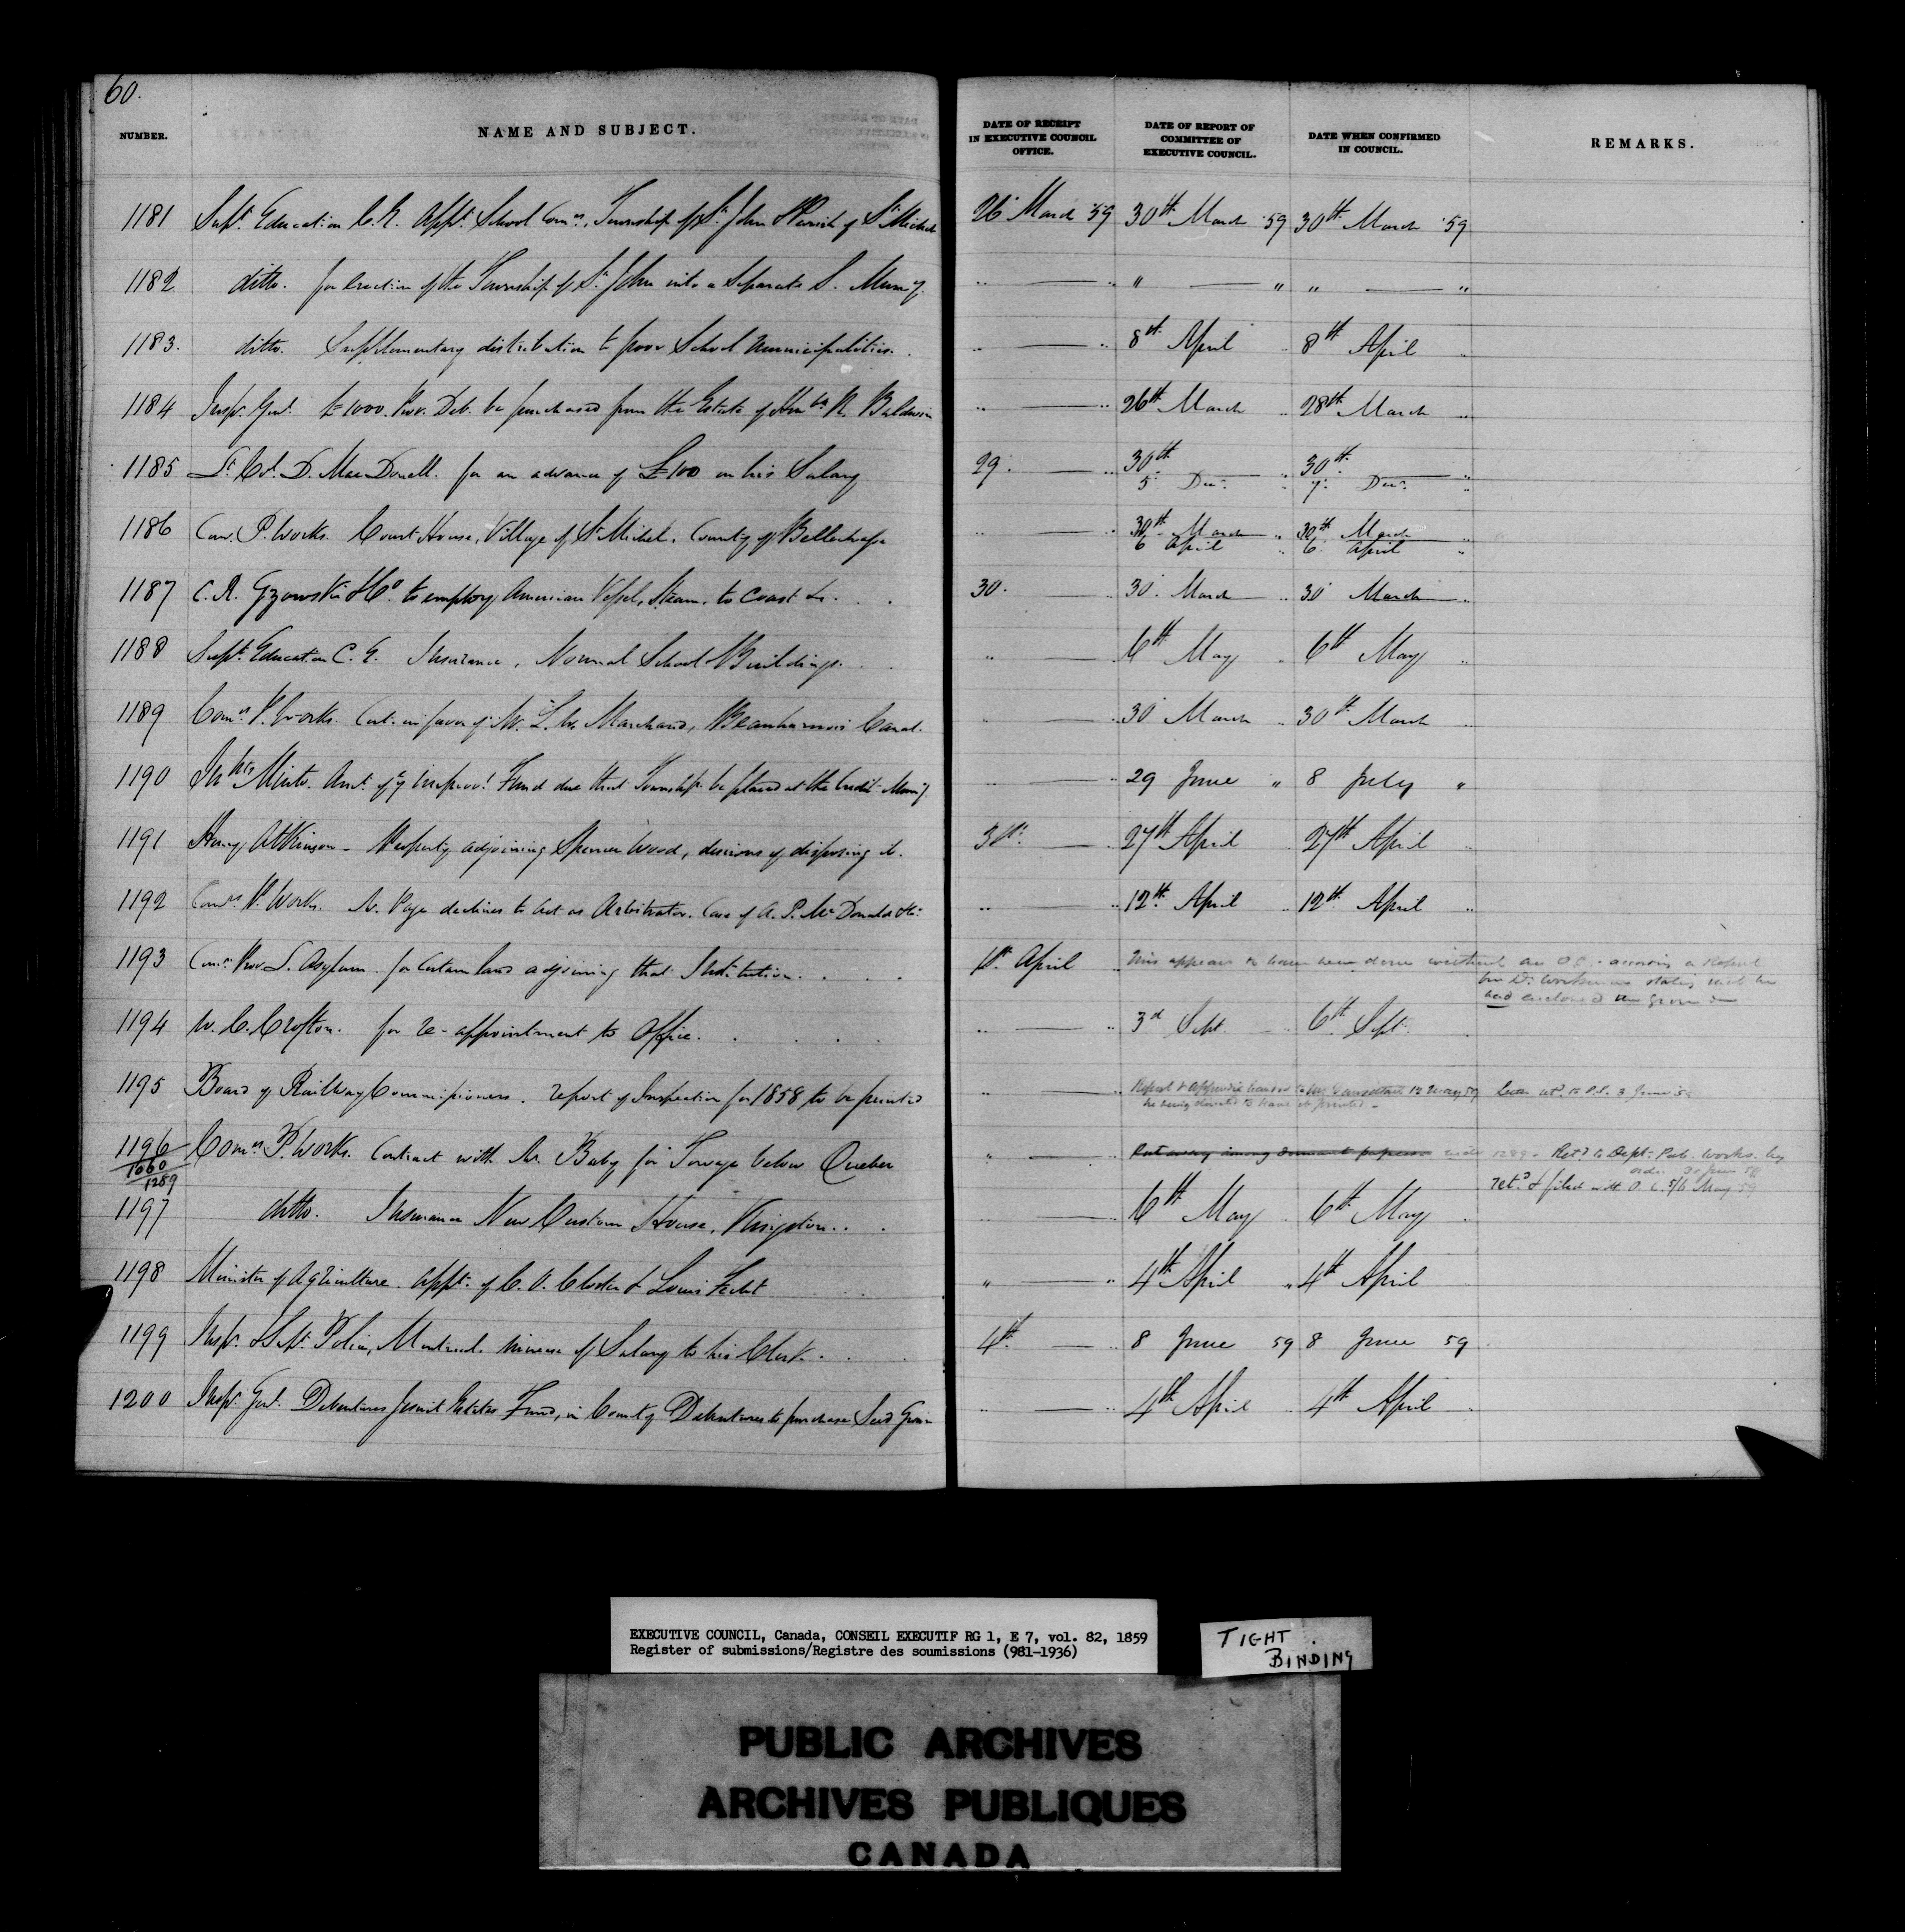 60.
NUMBER. NAME AND SUBJECT. DATE OF RECEIPT IN EXECUTIVE COUNCIL OFFICE. DATE OF REPORT OF COMMITTEE OF EXECUTIVE COUNCIL. DATE WHEN CONFIRMED IN COUNCIL. REMARKS.
1181 Supt. Education C.E. Appt. School Comrs, Township of St. John & Parish of St. Michel 26 March '59 30th March '59 30th March '59
1182 ditto. for Erection of the Township of St. John into a Separate S. Muny. " " " " "
1183. ditto. Supplementary distribution to poor School Municipalities. 8th April 8th April
1184 Inspr. Genl. £1000. Prov. Deb. be purchased from the Estate of Honble R. Baldwin 26th March 28th March
1185 Lt. Col. D. MacDonell. for an advance of £100 on his Salary 29. 30th 30th
5 Decr. 7. Decr.
1186 Com. P. Works. Court House, Village of St Michel, County of Bellechasse 30th March 30th March
6 April 6 April
1187 C. S. Gzowski & Co. to employ American Vessel, Steam, to Coast &c. 30. 30. March 30 March
1188 Supt. Education C.E. Insurance, Normal School Buildings. 6th May 6th May
1189 Comrs P. Works. Cert. in favor of Mr. L. Marchand, Beauharnois Canal. 30 March 30th March
1190 Minto. Amt. of Improvt. Fund due that Township be placed at the Credit Muny. 29 June " 8 July "
1191 Henry Atkinson - Property adjoining Spencer Wood, desirous of disposing it. 31st. 27th April 27th April
1192 Comrs P. Works. Page declines to act as Arbitrator. Case of A. P. McDonald &c. 12th April 12th April
1193 Comrs. Prov. L. Asylum for Certain land adjoining that Institution. 1st. April This appears to have been done without an O.C. a Report
Dr. Workman stating that he
had enclosed the ground
1194 W. C. Crofton. for re-appointment to Office. 3d Sept. 6th Sept.
1195 Board of Railway Commissioners. report of Inspection for 1858 to be printed Report & Appendix handed to 12 May 59 3 June 59
he being directed to have it printed -
1196 Comrs P. Works. Contract with Mr. Baby for Towage below Quebec Put away among Dormant papers under 1289. Retd to Dept. Pub. Works. by
1060
1289 order 30 June 59
retd. & filed with O.C. 5/6 May 59
1197 ditto. Insurance New Custom House, Kingston. 6th May 6th May
1198 Minister of Agriculture. Appt. of C. O. & Louis " 4th April 4th April
1199 Inspr. & Supt. Police, Montreal. increase of Salary to his Clerk. 4th. 8 June 59 8 June 59
1200 Inspr. Genl. Debentures Jesuit Estates Fund, in County Debentures to purchase Seed Grain 4th April 4th April
EXECUTIVE COUNCIL, Canada, CONSEIL EXECUTIF RG 1, E 7, vol. 82, 1859
Register of submissions/Registre des soumissions (981-1936)
TIGHT BINDING
PUBLIC ARCHIVES
ARCHIVES PUBLIQUES
CANADA